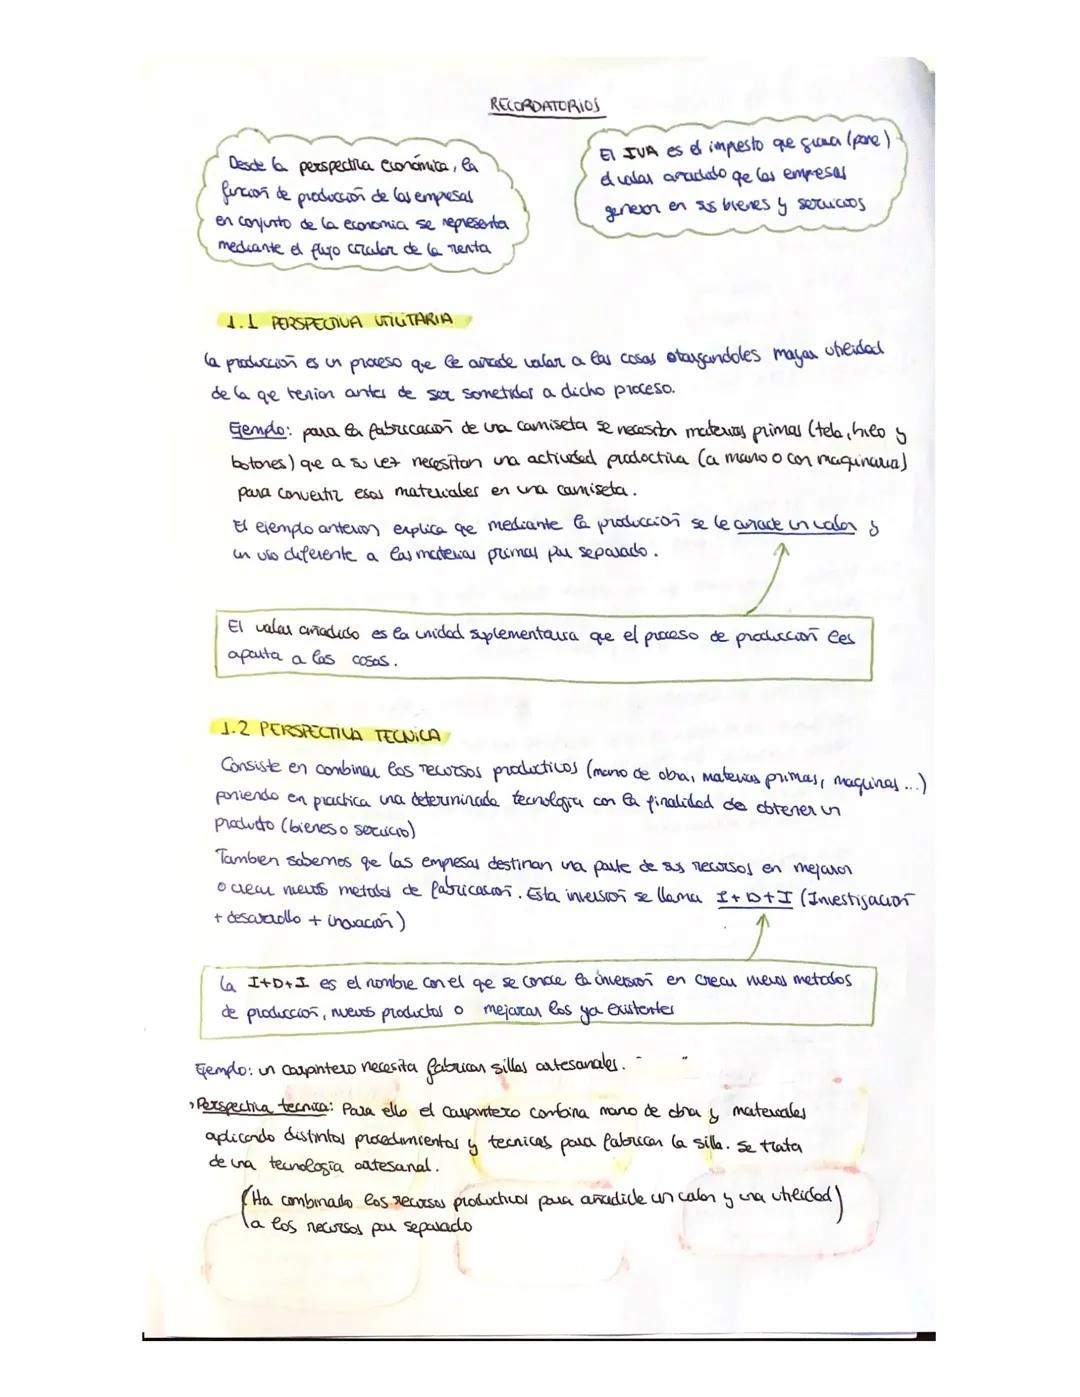 RECORDATORIOS
Desde la perspectiva económica, la
función de producción de las empresas
en conjunto de la economia se representa
mediante el flujo circular de la renta
El IVA es el impuesto que grava (pone)
el valor añadido que las empresas
generan en sus bienes y servicios
1.1 PERSPECTIVA UTILITARIA
La producción es un proceso que le añade valor a las cosas otorgandoles mayor utilidad
de la que tenian antes de ser sometidas a dicho proceso.
Ejemplo: para la fabricación de una camiseta se necesitan materias primas (tela, hilo y
botones) que a su vez necesitan una actividad productiva (a mano o con maquinaria)
para convertir esos materiales en una camiseta.
El ejemplo anterior, explica que mediante la producción se le añade un valor y
un uso diferente a las materias primas por separado.
El valor añadido es la unidad suplementaria que el proceso de producción les
aporta a las cosas.
1.2 PERSPECTIVA TECNICA
Consiste en combinar los recursos productivos (mano de obra, materias primas, maquinas ...)
poniendo en practica una determinada tecnologia con la finalidad de obtener un
producto (bienes o servicio)
Tambien sabemos que las empresas destinan una parte de sus recursos en mejorar
o crear nuevos metodos de fabricación. Esta inversión se llama I+D+I (Investigación
+ desarrollo + inovación)
La I+D+I es el nombre con el que se conoce la inversión en crear nuevos metodos
de producción, nuevos productos o mejorar los ya existentes
Ejemplo: un carpintero necesita fabricar sillas artesanales.
Perspectiva tecnica: Para ello el carpintero combina mano de obra y materiales
aplicando distintos procedimientos y tecnicas para fabricar la silla. Se trata
de una tecnologia artesanal.
(Ha combinado los recursos productivos para añadirle un valor y una utilidad)
a los recursos por separado